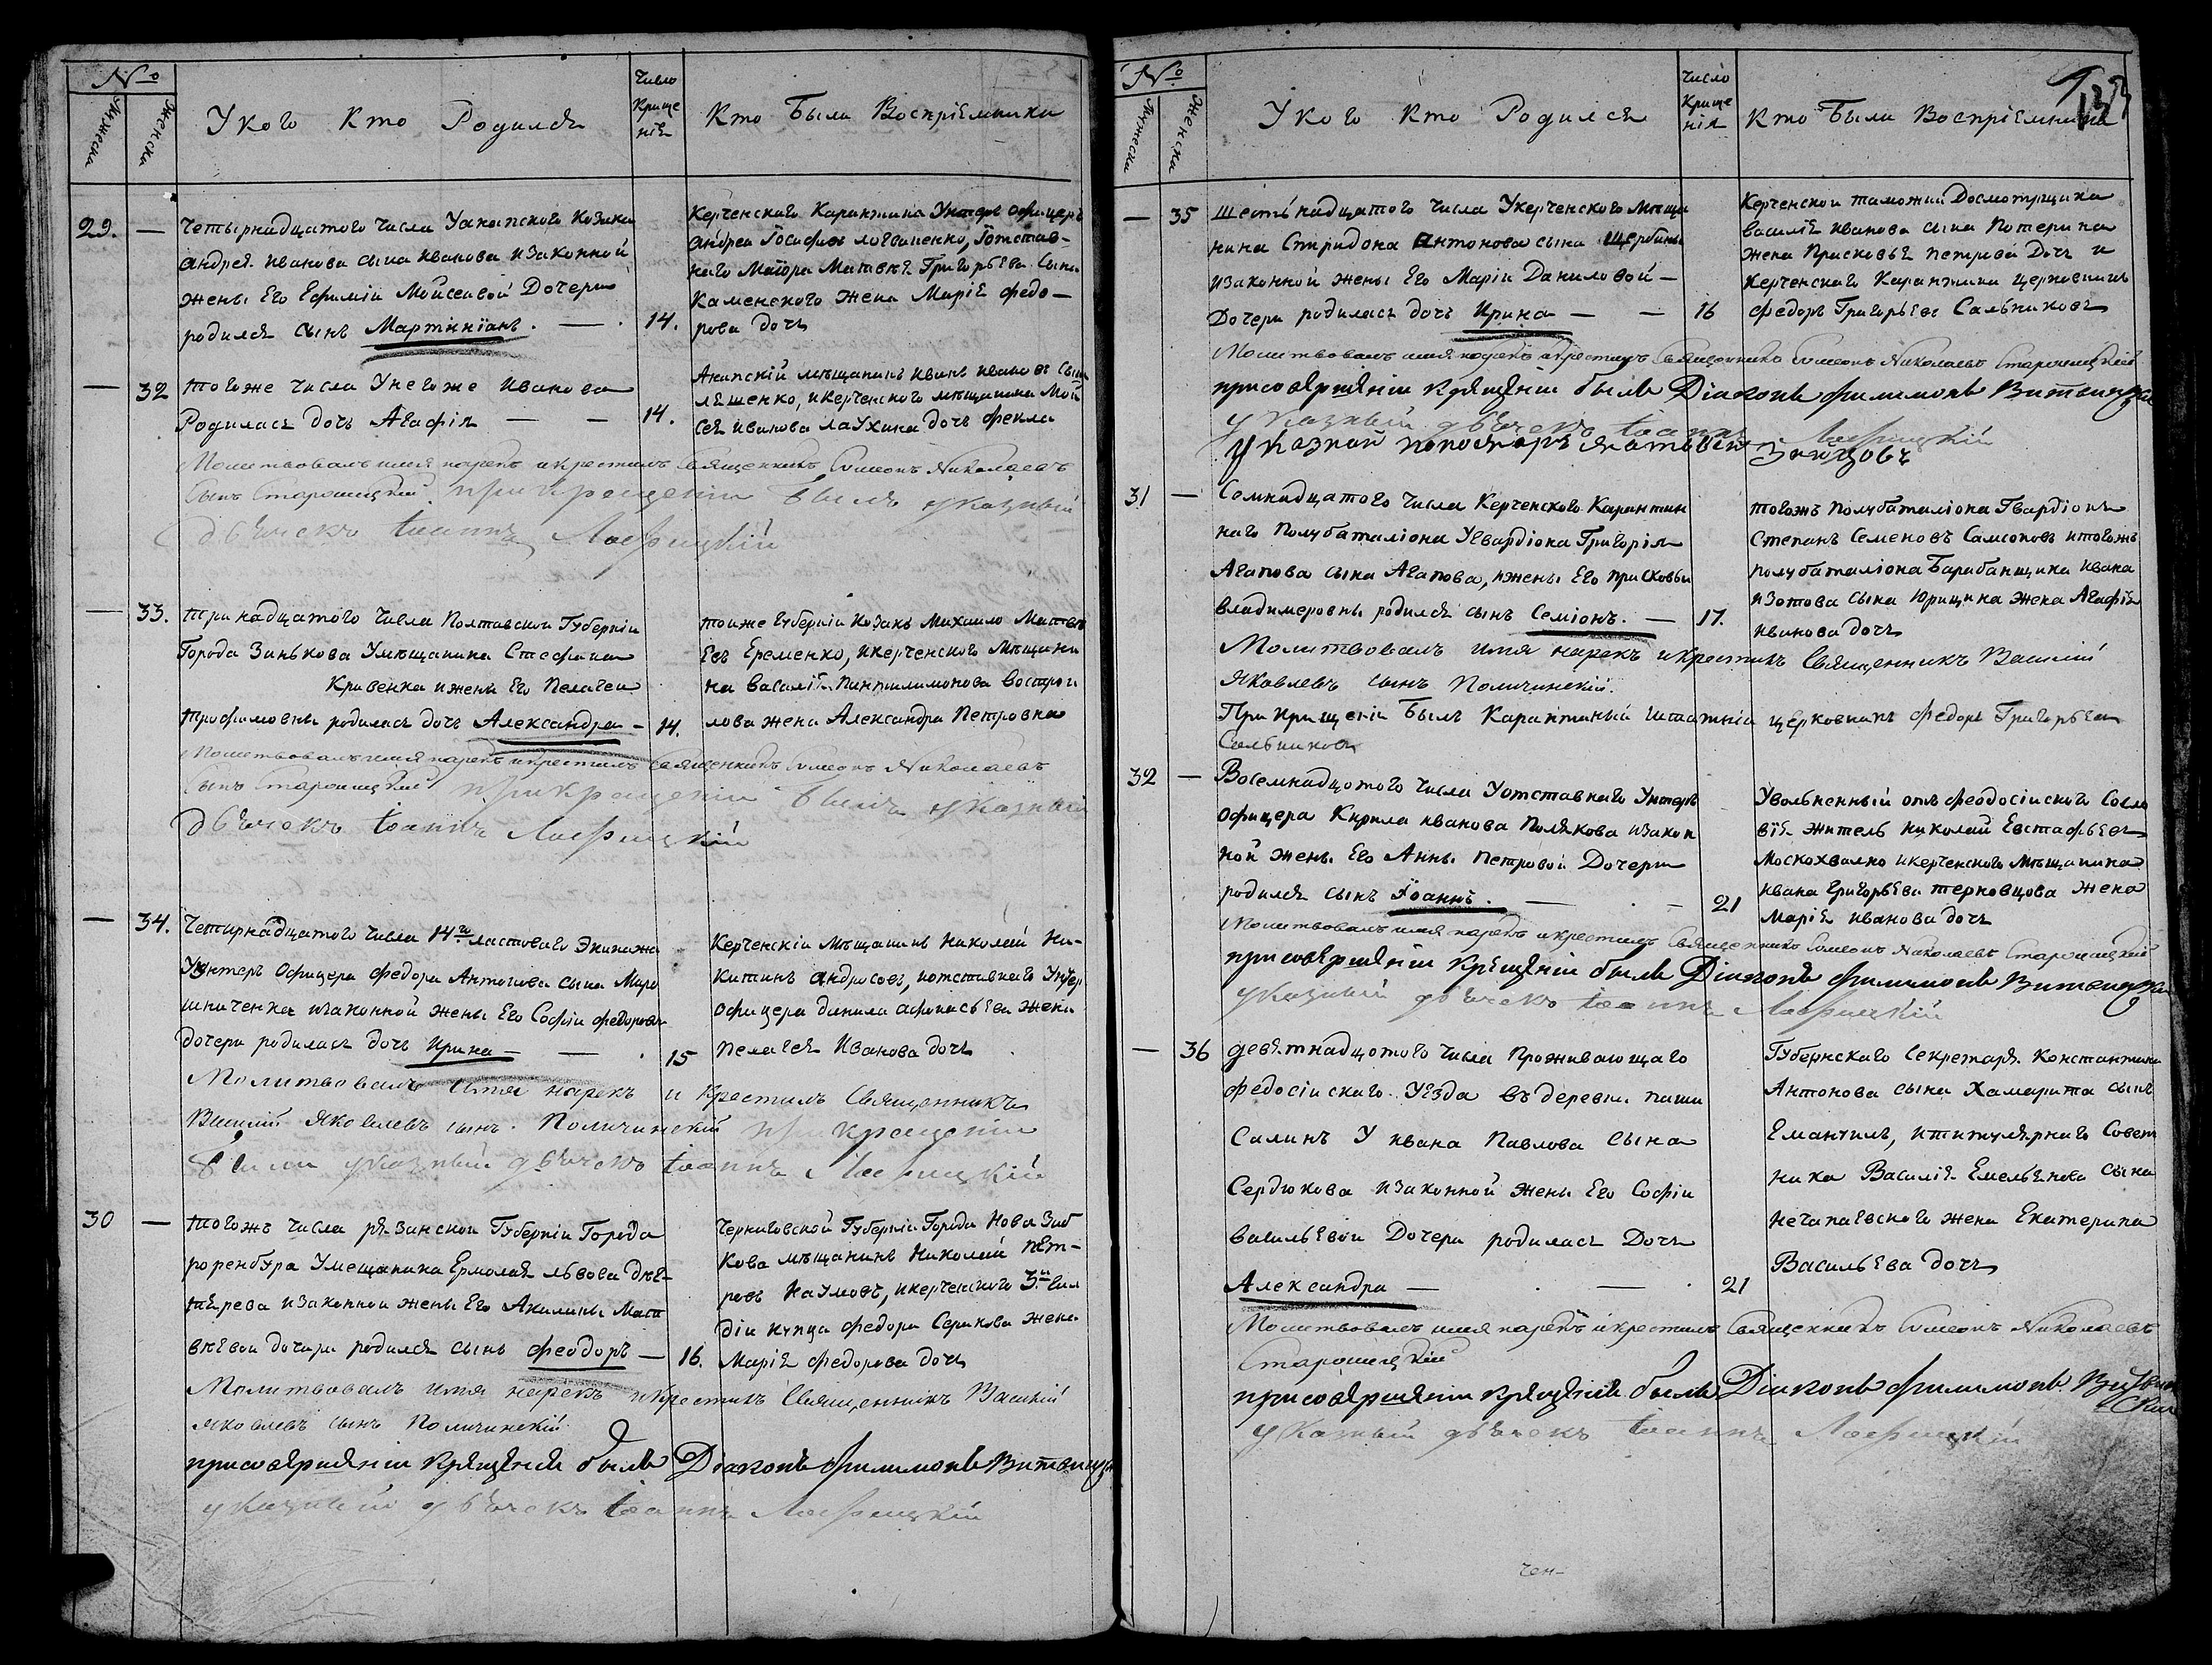 №
Мужеска
Женска
У кого Кто Родился
Число
Креще
нія
Кто Были Воспріемники
29. —
Четырнадцатого Числа У анапского Козака
Андрея Иванова сына Иванова изаконной
жены Его Ефиміи Мойсеевой Дочери
родился сынъ Мартініанъ. — 14.
Керченскаго Карантина Унтеръ Офицеръ
Андреи Іосифовъ логвиненко, Іотстав-
наго Маіора Матвея Григорьева Сына
Каменского жена Марія Федо-
рова дочь
— 32
того же числа У него же Иванова
Родилась дочь Агафія — — 14.
Анапскій мещанинъ Иванъ Ивановъ Сынъ
лешенко, икерченского мещанина Мои
сея Иванова лаУхина дочь Фекла
Молитвовалъ имя нарекъ икрестилъ Священникъ Симеонъ Николаевъ
Сынъ Старошицкій прикрещеніи былъ указный
дьячекъ Іоаннъ
— 33.
тринадцатого Числа Полтавской Губерніи
Города Зинькова Умещанина Стефана
Кравенка ижены Его Пелагеи
трофимовны родилась дочь Александра — 14.
тоиже Губерніи Козакъ Михаило Матве
Евъ Еременко, икерченского Мещани
на Василія Панпилимонова Востро
лова жена Александра Петровна
Молитвовалъ имя нарекъ икрестилъ Священникъ Симеонъ Николаевъ
Сынъ Старошицкій прикрещеніи былъ указный
дьячекъ Іоаннъ
— 34.
Четирнадцатого числа 14го ластоваго Экипажа
Унтеръ Офицера Федора Антонова сына Миро
шниченка изаконной жены Его Софіи Федоров
дочери родилась дочь Ирина — — 15
Керченскіи мещанинъ Николай Ни-
китинъ Андросовъ, иотставнаго Унтеръ
офицера данила афонасьева жена
Пелагея Иванова дочь
Молитвовалъ имя нарекъ и Крестилъ Священникъ
Василій Яковлевъ сынъ Поличинскій при крещеніи
были указный дьячекъ Іоаннъ
30 —
тогожъ числа рязанской Губерніи Города
роренбУра Умещанина Ермолая львова дне-
терева изаконнои жены Его Акилины Мат
веевои дочери родился сынъ Феодоръ — 16.
Черниговской Губерніи Города Нова Зыб
кова мещанинъ Николай Пет-
ровъ Наумовъ, икерченского 3й Гил
діи купца Федора Серикова жена
Марія Федорова дочь
Молитвовалъ имя нарекъ икрестилъ Священникъ Василій
Яковлевъ сынъ Поличинскій
присовершеніи крещенія былъ Діаконъ Филимонъ
указный дьячекъ Іоаннъ
№
Мужеска
Женска
У кого Кто Родился
Число
Креще
нія
Кто Были Воспріемники
— 35
Шестьнадцатого Числа Укерченского Меща
нина Спиридона Антонова сына Щербины
изаконной жены Его Маріи Даниловой —
Дочери родилась дочь Ирина — — 16
Керченской таможни Досмотрщика
василія Иванова сына Потерина
жена Прасковья Петрова Дочь и
Керченскаго Карантина церковникъ
Федоръ Григорьевъ Сальниковъ
Молитвовалъ имя нарекъ икрестилъ Священникъ Симеонъ Николаевъ Старошицкій
присовершеніи крещеніи былъ Діаконъ Филимонъ
указный дьячекъ Іоаннъ
указной понамарь
31 —
Семнадцатого Числа Керченского Карантин
наго Полубаталіона Угвардіона Григорія
Агапова сына Агапова, ижены Его прасковьи
владимеровны родился сынъ Семіонъ. — 17.
тогожъ Полубаталіона Гвардіонъ
Степанъ Семеновъ Самсоновъ итогожъ
полубаталіона Барабанщика Ивана
Изотова сына Юрищина жена Агафія
Иванова дочь
Молитвовалъ имя нарекъ икрестилъ Священникъ Василій
Яковлевъ сынъ Поличинскій.
При крещеніи Былъ Карантинный Штатній церковникъ Федоръ Григорьевъ
Сальниковъ
32 —
Восемнадцатого Числа Уотставнаго Унтеръ
Офицера Кирила Иванова Полякова изакон
ной жены Его Анны Петровой Дочери
родился сынъ Іоаннъ. — — 21
Уволненный отъ Феодосіиского Сосло
вія житель Николай Евстафьевъ
Москохвално икерченского Мещанина
Ивана Григорьева терновцова жена
Марія Иванова дочь
Молитвовалъ имя нарекъ икрестилъ Священникъ Симеонъ Николаевъ Старошицкій
присовершеніи крещеніи былъ Діаконъ Филимонъ
указный дьячекъ Іоаннъ
— 36
девятнадцатого Числа Проживающаго
Федосіиского Уезда въ деревни паши
Салинъ У Ивана Павлова сына
Сердюкова изаконной жены Его Софіи
васильевой Дочери родилась Дочь
Александра — — 21
Губернскаго Секретаря Константина
Антонова сына Хамарита сынъ
Емануилъ, ититулярнаго Совет
ника Василія Емельянова сына
Нечапаевского жена Екатерина
Васильева дочь
Молитвовалъ имя нарекъ икрестилъ Священникъ Симеонъ Николаевъ
Старошицкій
присовершеніи крещенія былъ Діаконъ Филимонъ
указный дьячекъ Іоаннъ